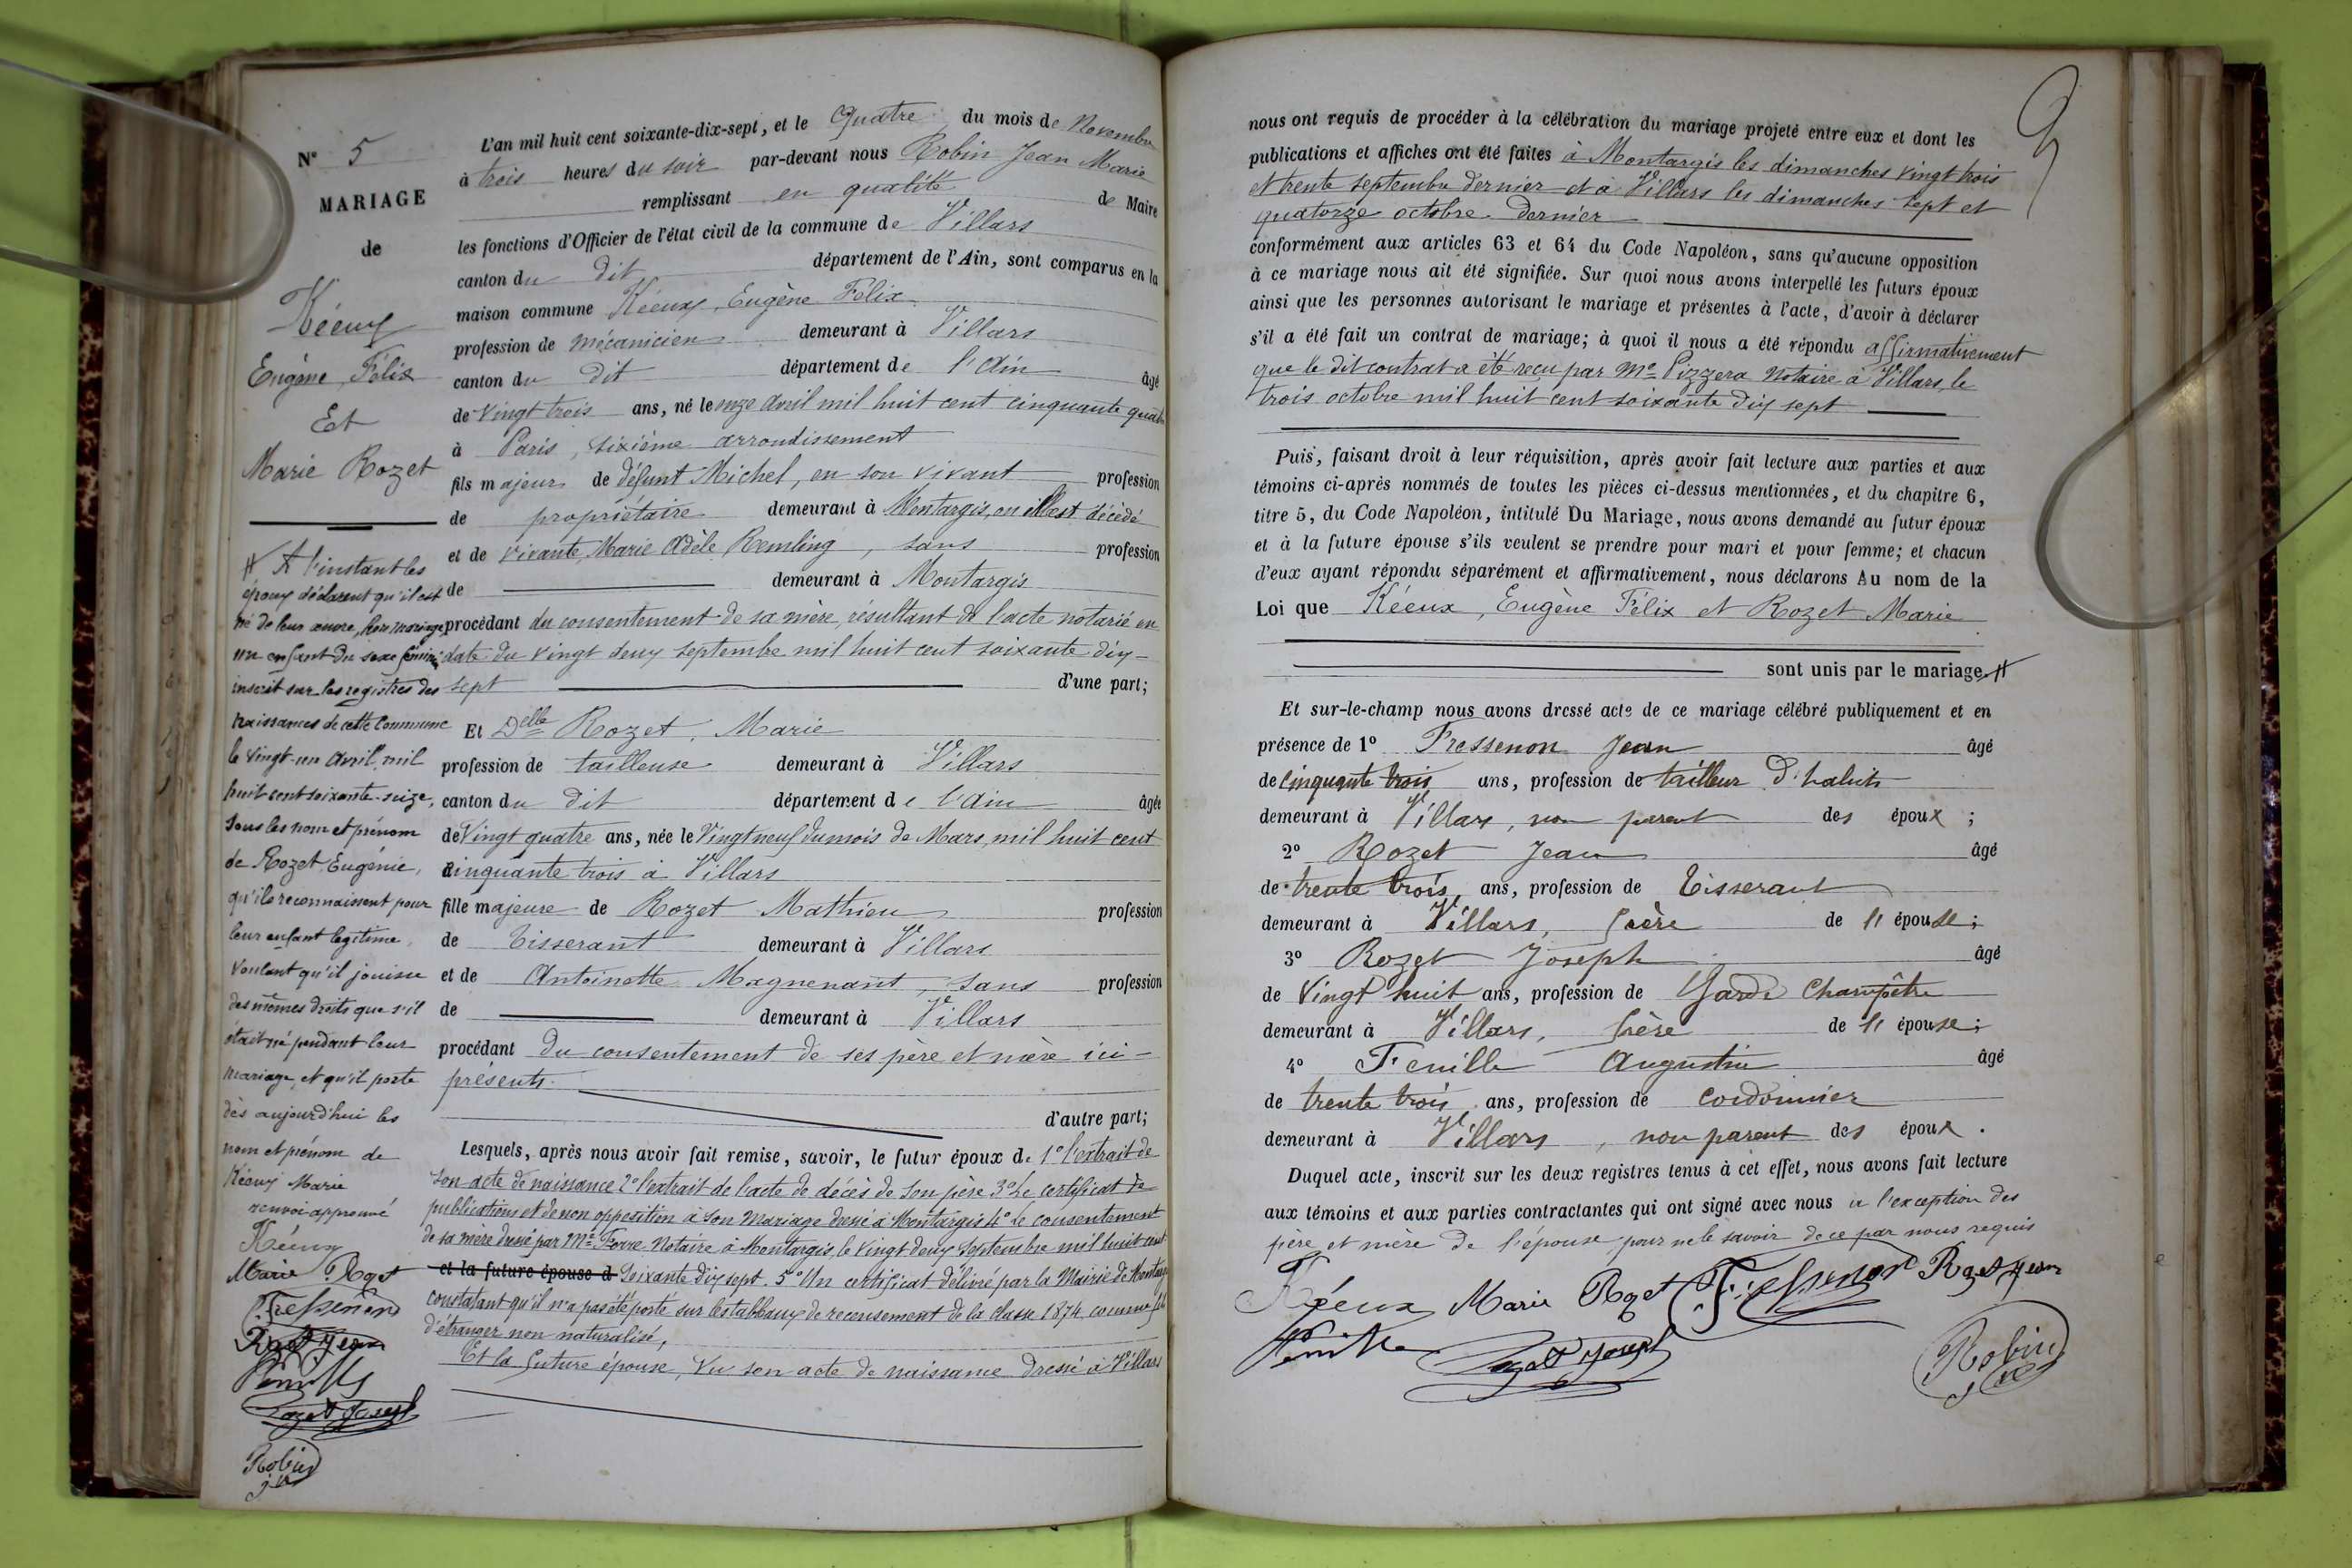 N° 5
MARIAGE
de
Kéeux
Eugène, Félix
Et
Marie Rozet
# A l'instant les
époux déclarent qu'il est
né de leur œuvre, hors mariage
un enfant du sexe féminin
inscrit sur les registres des
naissances de cette commune
le vingt-un avril, mil
huit cent soixante-seize,
sous les nom et prénom
de Rozet Eugénie,
qu'ils reconnaissent pour
leur enfant légitime,
voulant qu'il jouisse
des mêmes droits que s'il
était né pendant leur
mariage, et qu'il porte
dès aujourd'hui les
nom et prénom de
Kéeux Marie
renvoi approuvé
Kéeux
Marie Rozet
Fressenon
Rozet Jean
Fenille
Rozet Joseph
Robin
L'an mil huit cent soixante-dix-sept, et le Quatre du mois de Novembre
à trois heures du soir par-devant nous Robin Jean Marie
remplissant en qualité de Maire
les fonctions d'Officier de l'état civil de la commune de Villars
canton du dit département de l'Ain, sont comparus en la
maison commune Kéeux, Eugène Félix
profession de mécanicien demeurant à Villars
canton du dit département de l'Ain âgé
de vingt trois ans, né le onze avril mil huit cent cinquante quatre
à Paris, sixième arrondissement
fils majeur de défunt Michel, en son vivant profession
de propriétaire demeurant à Montargis, où il est décédé
et de vivante, Marie Adèle Remling, sans profession
de demeurant à Montargis
procédant du consentement de sa mère, résultant de l'acte notarié en
date du vingt deux septembre mil huit cent soixante dix-
sept d'une part;
Et Delle Rozet, Marie
profession de tailleuse demeurant à Villars
canton du dit département de l'Ain âgée
de Vingt quatre ans, née le Vingt neuf du mois de Mars, mil huit cent
cinquante trois à Villars
fille majeure de Rozet Mathieu profession
de Tisserant demeurant à Villars
et de Antoinette Magnenant, sans profession
de demeurant à Villars
procédant du consentement de ses père et mère ici-
présents
d'autre part;
Lesquels, après nous avoir fait remise, savoir, le futur époux de 1° l'extrait de
son acte de naissance 2° l'extrait de l'acte de décès de son père 3° Le certificat de
publications et de non opposition à son mariage dressé à Montargis 4° Le consentement
de sa mère dressé par Me Notaire à Montargis, le vingt deux septembre mil huit cent
et la future épouse d soixante dix sept. 5° Un certificat délivré par la Mairie de Montargis
constatant qu'il n'a pas été porté sur les tableaux de recensement de la classe 1874 comme fils
d'étranger non naturalisé,
Et la future épouse, Vu son acte de naissance dressé à Villars
nous ont requis de procéder à la célébration du mariage projeté entre eux et dont les
publications et affiches ont été faites à Montargis les dimanches vingt trois
et trente septembre dernier et à Villars les dimanches sept et
quatorze octobre dernier
conformément aux articles 63 et 64 du Code Napoléon, sans qu'aucune opposition
à ce mariage nous ait été signifiée. Sur quoi nous avons interpellé les futurs époux
ainsi que les personnes autorisant le mariage et présentes à l'acte, d'avoir à déclarer
s'il a été fait un contrat de mariage; à quoi il nous a été répondu affirmativement
que le dit contrat a été reçu par Me Pizzera Notaire à Villars, le
trois octobre mil huit cent soixante dix sept
Puis, faisant droit à leur réquisition, après avoir fait lecture aux parties et aux
témoins ci-après nommés de toutes les pièces ci-dessus mentionnées, et du chapitre 6,
titre 5, du Code Napoléon, intitulé Du Mariage, nous avons demandé au futur époux
et à la future épouse s'ils veulent se prendre pour mari et pour femme; et chacun
d'eux ayant répondu séparément et affirmativement, nous déclarons Au nom de la
Loi que Kéeux, Eugène Félix et Rozet Marie
sont unis par le mariage. #
Et sur-le-champ nous avons dressé acte de ce mariage célébré publiquement et en
présence de 1° Fressenon Jean âgé
de cinquante trois ans, profession de tailleur d'habits
demeurant à Villars, non parent des époux;
2° Rozet Jean âgé
de trente trois ans, profession de Tisserant
demeurant à Villars, frère de l'épouse;
3° Rozet Joseph âgé
de vingt huit ans, profession de Garde Champêtre
demeurant à Villars, frère de l'épouse;
4° Fenille Augustin âgé
de trente trois ans, profession de cordonnier
demeurant à Villars, non parent des époux.
Duquel acte, inscrit sur les deux registres tenus à cet effet, nous avons fait lecture
aux témoins et aux parties contractantes qui ont signé avec nous à l'exception des
père et mère de l'épouse pour ne le savoir de ce par nous requis
Kéeux Marie Rozet Fressenon Rozet Jean
Fenille Rozet Joseph Robin